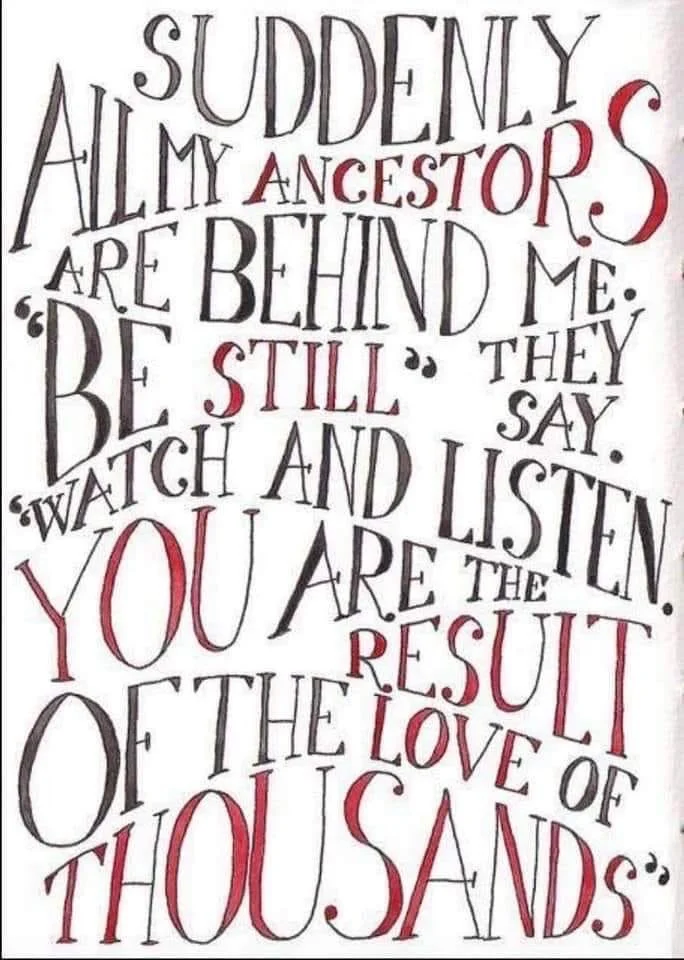 SUDDENLY
ALL MY ANCESTORS
ARE BEHIND ME.
“BE STILL” THEY
SAY.
“WATCH AND LISTEN.
YOU ARE THE
RESULT
OF THE LOVE OF
THOUSANDS”